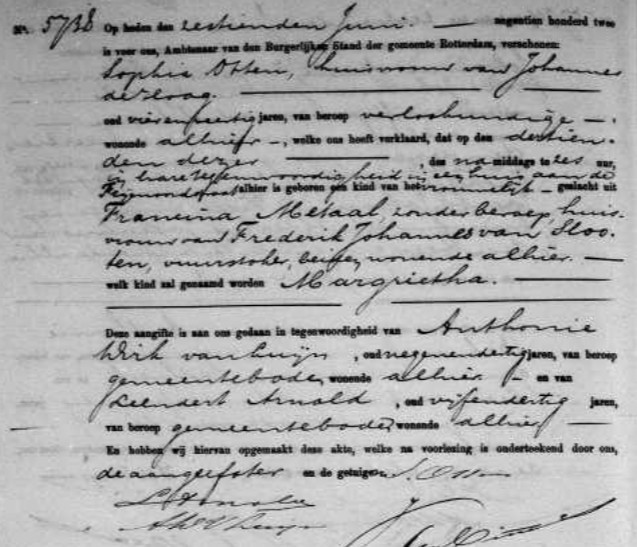 No. 5738 Op heden den zestienden Juni — negentien honderd twee
is voor ons, Ambtenaar van den Burgerlijken Stand der gemeente Rotterdam, verschenen:
Sophia Otten, huisvrouw van Johannes
de Haag.
oud vierenveertig jaren, van beroep verloskundige —
wonende alhier —, welke ons heeft verklaard, dat op den dertien-
den dezer — , des na middags te zes uur,
in hare tegenwoordigheid in een huis aan de
alhier is geboren een kind van het vrouwelijk — geslacht uit
Francina Metaal, zonder beroep, huis-
vrouw van Frederik Johannes van Sloo-
ten, vuurstoker, beiden wonende alhier. —
welk kind zal genaamd worden Margrietha. —
Deze aangifte is aan ons gedaan in tegenwoordigheid van Anthonie
Dirk van , oud negenendertig jaren, van beroep
gemeentebode, wonende alhier — en van
Leendert Arnold , oud vijfendertig jaren,
van beroep gemeentebode, wonende alhier —
En hebben wij hiervan opgemaakt deze akte, welke na voorlezing is onderteekend door ons,
de aangeefster en de getuigen. S. Otten
L Arnold